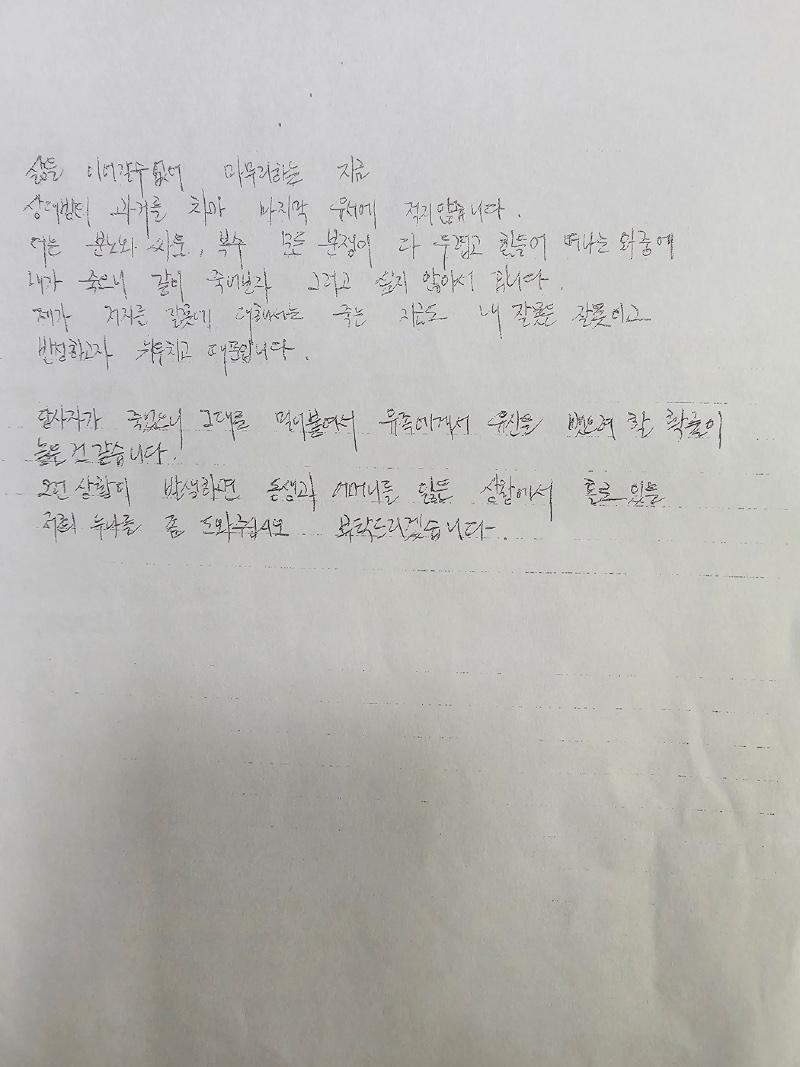 삶을 이어갈수없어 마무리하는 지금
상대방의 과거를 차마 마지막 유서에 적지않습니다.
저는 분노와 싸움, 복수 모든 분쟁이 다 두렵고 힘들어 떠나는 와중에
내가 죽으니 같이 죽어보자 그러고 싶지 않아서 입니다.
제가 저지른 잘못에 대해서는 죽는 지금도 내 잘못은 잘못이고
반성하고자 뉘우치고 때문입니다.
당사자가 죽었으니 그대로 밀어붙여서 유족에게서 유산을 뺏으려 할 확률이
높은 것 같습니다.
그런 상황이 발생하면 동생과 어머니를 잃은 상황에서 홀로 있을
저희 누나를 좀 도와주십시오 부탁드리겠습니다.